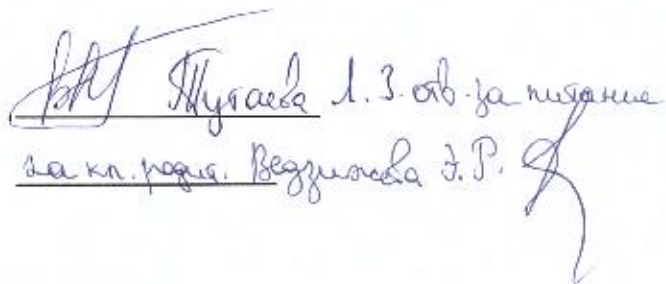 Тутаева Л. З. отв. за питание
кл. родит. Ведзижева Э. Р.